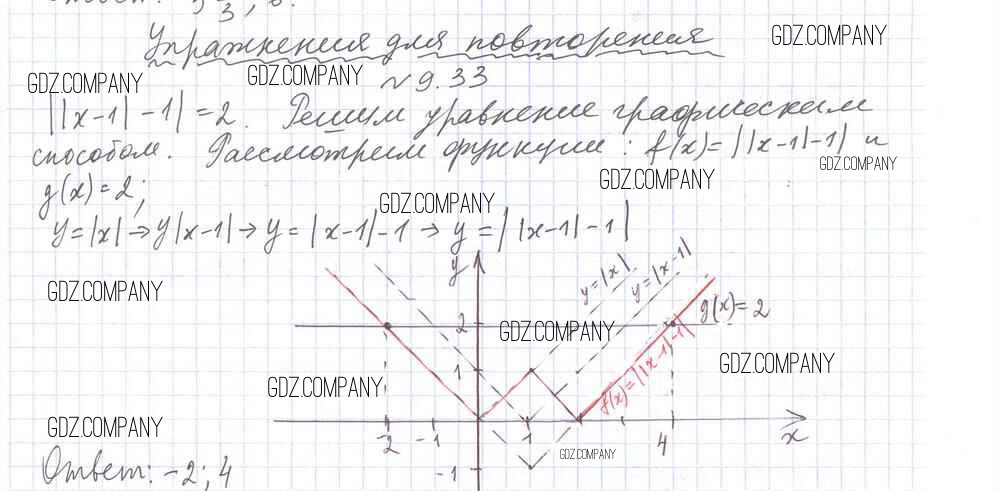 Упражнения для повторения
GDZ.COMPANY
GDZ.COMPANY
GDZ.COMPANY
№ 9.33
||x-1|-1|=2. Решим уравнение графическим
способом. Рассмотрим функции: f(x)=||x-1|-1| и
GDZ.COMPANY
GDZ.COMPANY
g(x)=2;
GDZ.COMPANY
y=|x|→y|x-1|→y=|x-1|-1→y=||x-1|-1|
GDZ.COMPANY
y
y=|x|
y=|x-1|
g(x)=2
2
GDZ.COMPANY
GDZ.COMPANY
1
f(x)=||x-1|-1|
GDZ.COMPANY
GDZ.COMPANY
-2 -1 1 4 x
GDZ.COMPANY
-1
Ответ: -2; 4